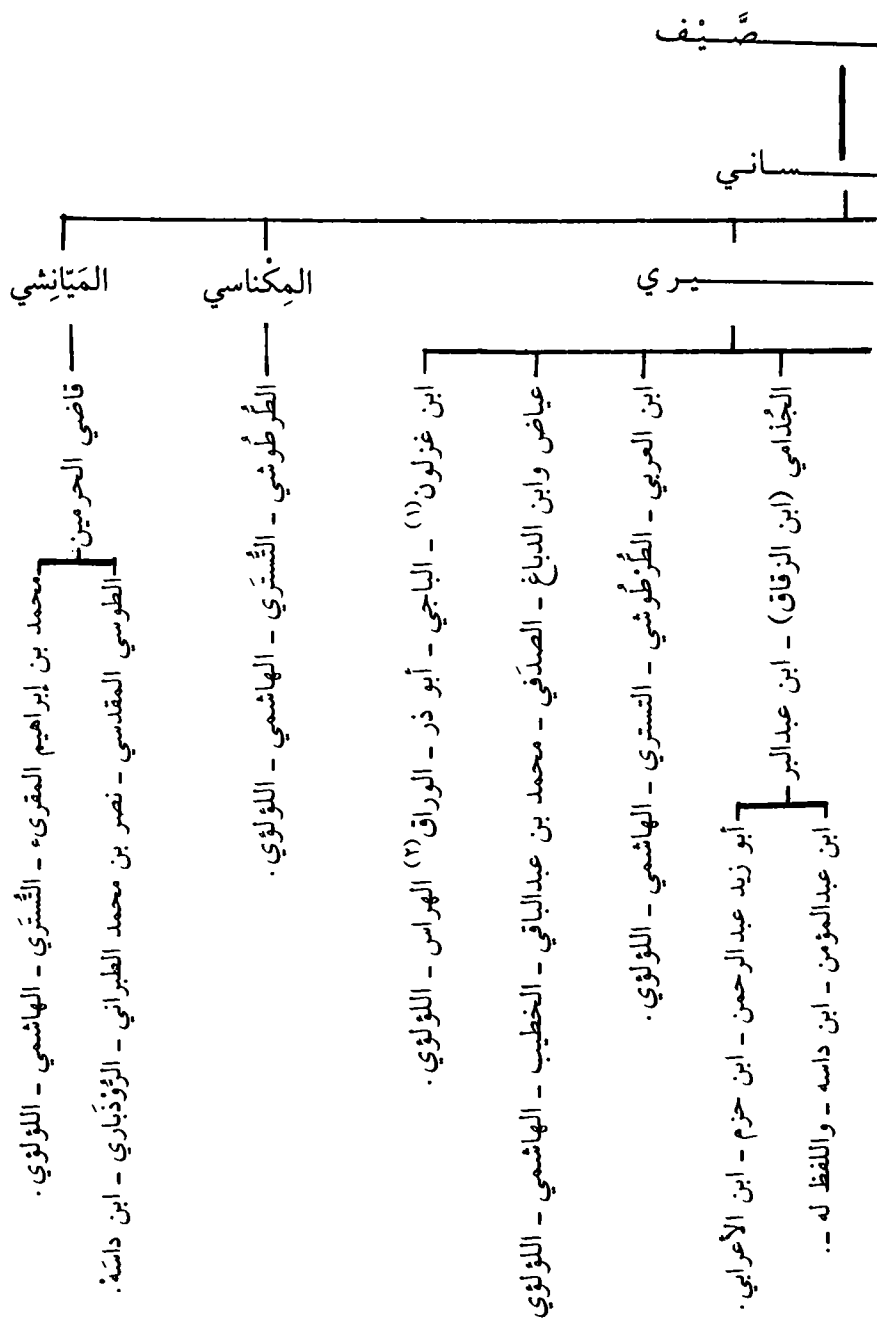 صَّيْف
ساني
يري
المِكْناسي
المَيّانِشي
الجُذامي (ابن الزقاق) - ابن عبدالبر
ابن عبدالمؤمن - ابن داسه - واللفظ له -.
أبو زيد عبدالرحمن - ابن حزم - ابن الأعرابي.
ابن العربي - الطُّرْطُوشي - التستري - الهاشمي - اللؤلؤي.
عياض وابن الدباغ - الصدَفي - محمد بن عبدالباقي - الخطيب - الهاشمي - اللؤلؤي
ابن غزلون(١) - الباجي - أبو ذر - الوراق(٢) الهراس - اللؤلؤي.
الطُّرطُوشي - التُّستَري - الهاشمي - اللؤلؤي.
قاضي الحرمين
الطوسي المقدسي - نصر بن محمد الطبراني - الرُّوْذَبَاري - ابن داسَهْ.
محمد بن إبراهيم المقرىء - التُّستَري - الهاشمي - اللؤلؤي.